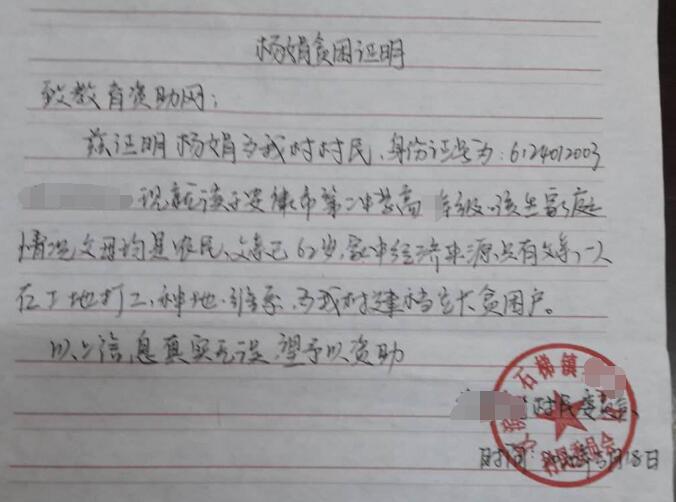 杨娟贫困证明
致教育资助网：
兹证明杨娟为我村村民，身份证号为：6124012003
现就读于安康市第二中学高 年级。该生家庭
情况父母均是农民，父亲已62岁，家中经济来源只有父亲一人
在工地打工、种地、维系，为我村建档立卡贫困户。
以上信息真实无误，望予以资助
石梯镇
村民委员会
村民委员会
时间： 月18日